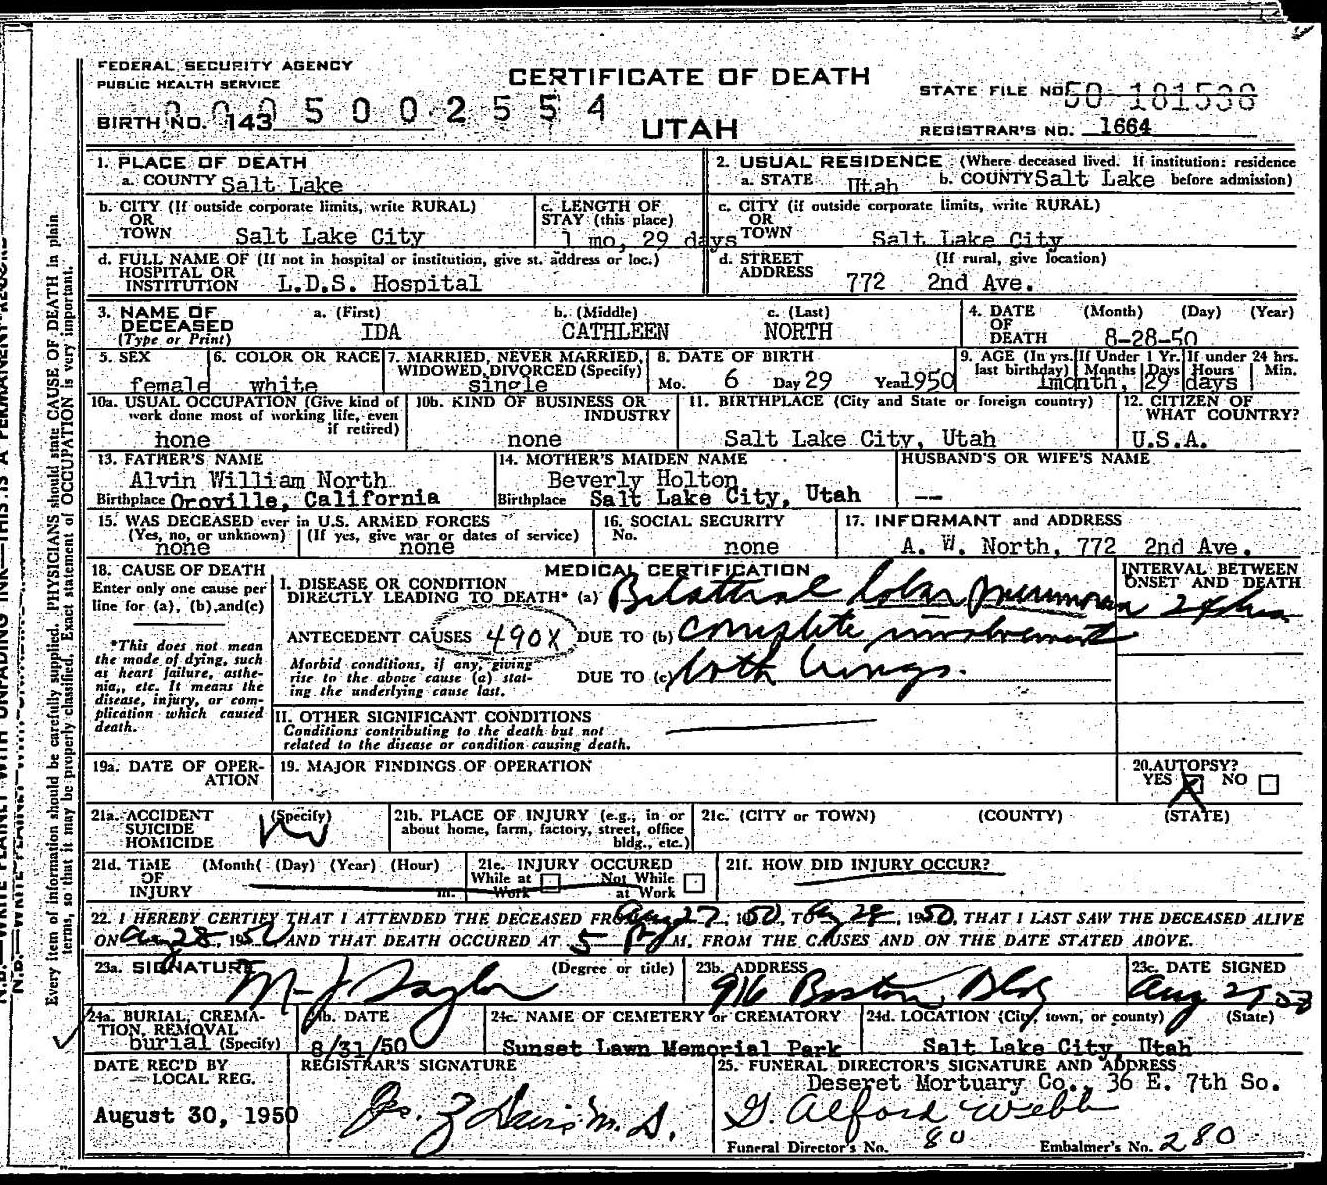 FEDERAL SECURITY AGENCY
PUBLIC HEALTH SERVICE
CERTIFICATE OF DEATH
UTAH
STATE FILE NO. 50-181538
0005002554
BIRTH NO. 143
REGISTRAR'S NO. 1664
1. PLACE OF DEATH
a. COUNTY Salt Lake
2. USUAL RESIDENCE (Where deceased lived. If institution: residence before admission)
a. STATE Utah b. COUNTY Salt Lake
b. CITY (If outside corporate limits, write RURAL) OR TOWN Salt Lake City
c. LENGTH OF STAY (this place) 1 mo, 29 days
c. CITY (if outside corporate limits, write RURAL) OR TOWN Salt Lake City
d. FULL NAME OF (If not in hospital or institution, give st. address or loc.) HOSPITAL OR INSTITUTION L.D.S. Hospital
d. STREET ADDRESS (If rural, give location) 772 2nd Ave.
3. NAME OF DECEASED (Type or Print) a. (First) IDA b. (Middle) CATHLEEN c. (Last) NORTH
4. DATE OF DEATH (Month) (Day) (Year) 8-28-50
5. SEX female
6. COLOR OR RACE white
7. MARRIED, NEVER MARRIED, WIDOWED, DIVORCED (Specify) single
8. DATE OF BIRTH Mo. 6 Day 29 Year 1950
9. AGE (In yrs. last birthday) If Under 1 Yr. Months Days If under 24 hrs. Hours Min. 1month, 29 days
10a. USUAL OCCUPATION (Give kind of work done most of working life, even if retired) hone
10b. KIND OF BUSINESS OR INDUSTRY none
11. BIRTHPLACE (City and State or foreign country) Salt Lake City, Utah
12. CITIZEN OF WHAT COUNTRY? U.S.A.
13. FATHER'S NAME Alvin William North
Birthplace Oroville, California
14. MOTHER'S MAIDEN NAME Beverly Holton
Birthplace Salt Lake City, Utah
HUSBAND'S OR WIFE'S NAME --
15. WAS DECEASED ever in U.S. ARMED FORCES
(Yes, no, or unknown) none (If yes, give war or dates of service) none
16. SOCIAL SECURITY No. none
17. INFORMANT and ADDRESS A. W. North, 772 2nd Ave.
18. CAUSE OF DEATH
Enter only one cause per line for (a), (b), and (c)
*This does not mean the mode of dying, such as heart failure, asthenia, etc. It means the disease, injury, or complication which caused death.
MEDICAL CERTIFICATION
INTERVAL BETWEEN ONSET AND DEATH
I. DISEASE OR CONDITION DIRECTLY LEADING TO DEATH* (a) Bilateral lobar pneumonia 24 hrs
ANTECEDENT CAUSES 490X DUE TO (b) complete involvement
Morbid conditions, if any, giving rise to the above cause (a) stating the underlying cause last.
DUE TO (c) both lungs.
II. OTHER SIGNIFICANT CONDITIONS
Conditions contributing to the death but not related to the disease or condition causing death.
19a. DATE OF OPERATION
19. MAJOR FINDINGS OF OPERATION
20. AUTOPSY? YES X NO
21a. ACCIDENT SUICIDE HOMICIDE (Specify) No
21b. PLACE OF INJURY (e.g., in or about home, farm, factory, street, office bldg., etc.)
21c. (CITY or TOWN) (COUNTY) (STATE)
21d. TIME OF INJURY (Month) (Day) (Year) (Hour) m.
21e. INJURY OCCURED While at Work Not While at Work
21f. HOW DID INJURY OCCUR?
22. I HEREBY CERTIFY THAT I ATTENDED THE DECEASED FROM Aug 27, 1950, TO Aug 28, 1950, THAT I LAST SAW THE DECEASED ALIVE
ON Aug 28, 1950 AND THAT DEATH OCCURED AT 5 P M. FROM THE CAUSES AND ON THE DATE STATED ABOVE.
23a. SIGNATURE M. J. Taylor (Degree or title)
23b. ADDRESS 916 Boston Bldg
23c. DATE SIGNED Aug 29 50
24a. BURIAL, CREMATION, REMOVAL (Specify) burial
24b. DATE 8/31/50
24c. NAME OF CEMETERY or CREMATORY Sunset Lawn Memorial Park
24d. LOCATION (City, town, or county) (State) Salt Lake City, Utah
DATE REC'D BY LOCAL REG. August 30, 1950
REGISTRAR'S SIGNATURE M.D.
25. FUNERAL DIRECTOR'S SIGNATURE AND ADDRESS
Deseret Mortuary Co., 36 E. 7th So.
G. Alford Webb
Funeral Director's No. 80 Embalmer's No. 280
Every item of information should be carefully supplied. PHYSICIANS should state CAUSE OF DEATH in plain terms, so that it may be properly classified. Exact statement of OCCUPATION is very important.